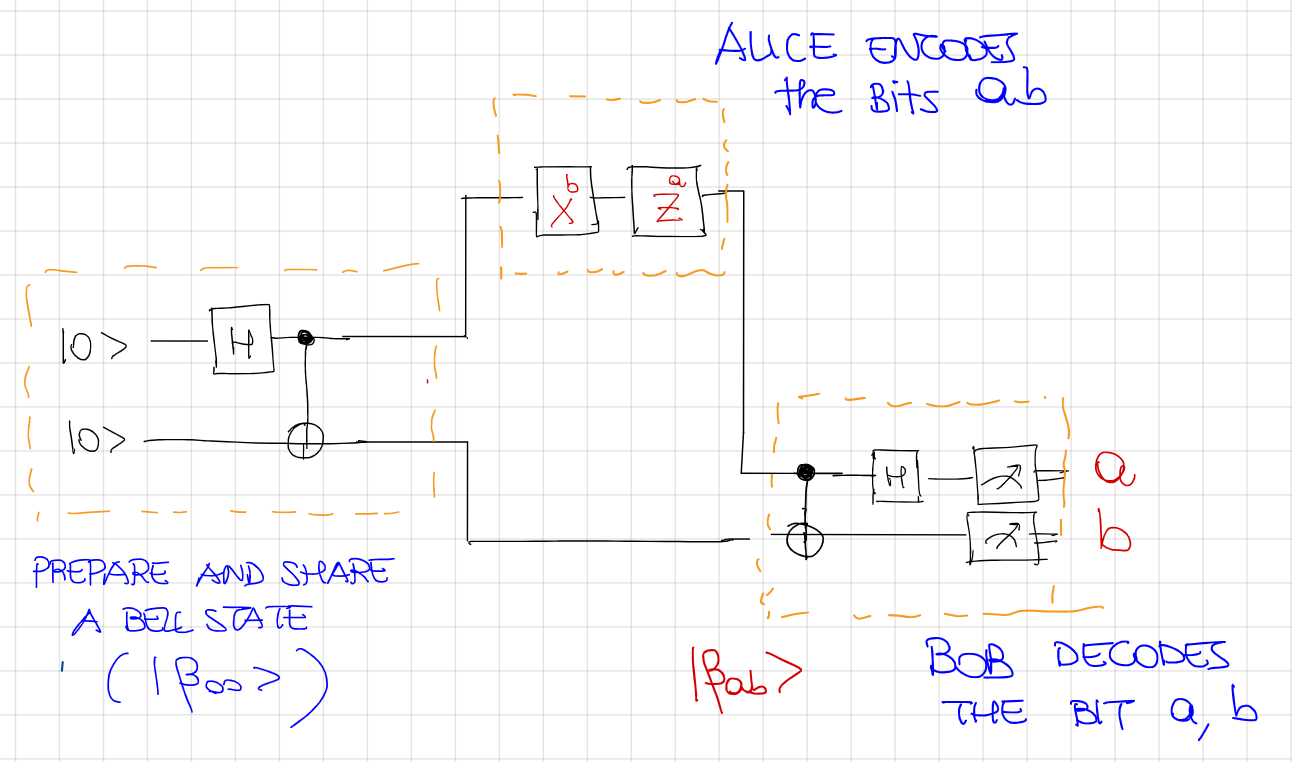 ALICE ENCODES
the Bits ab
X^b
Z^a
|0>
H
|0>
H
a
b
PREPARE AND SHARE
A BELL STATE
(|β00>)
|βab>
BOB DECODES
THE BIT a, b